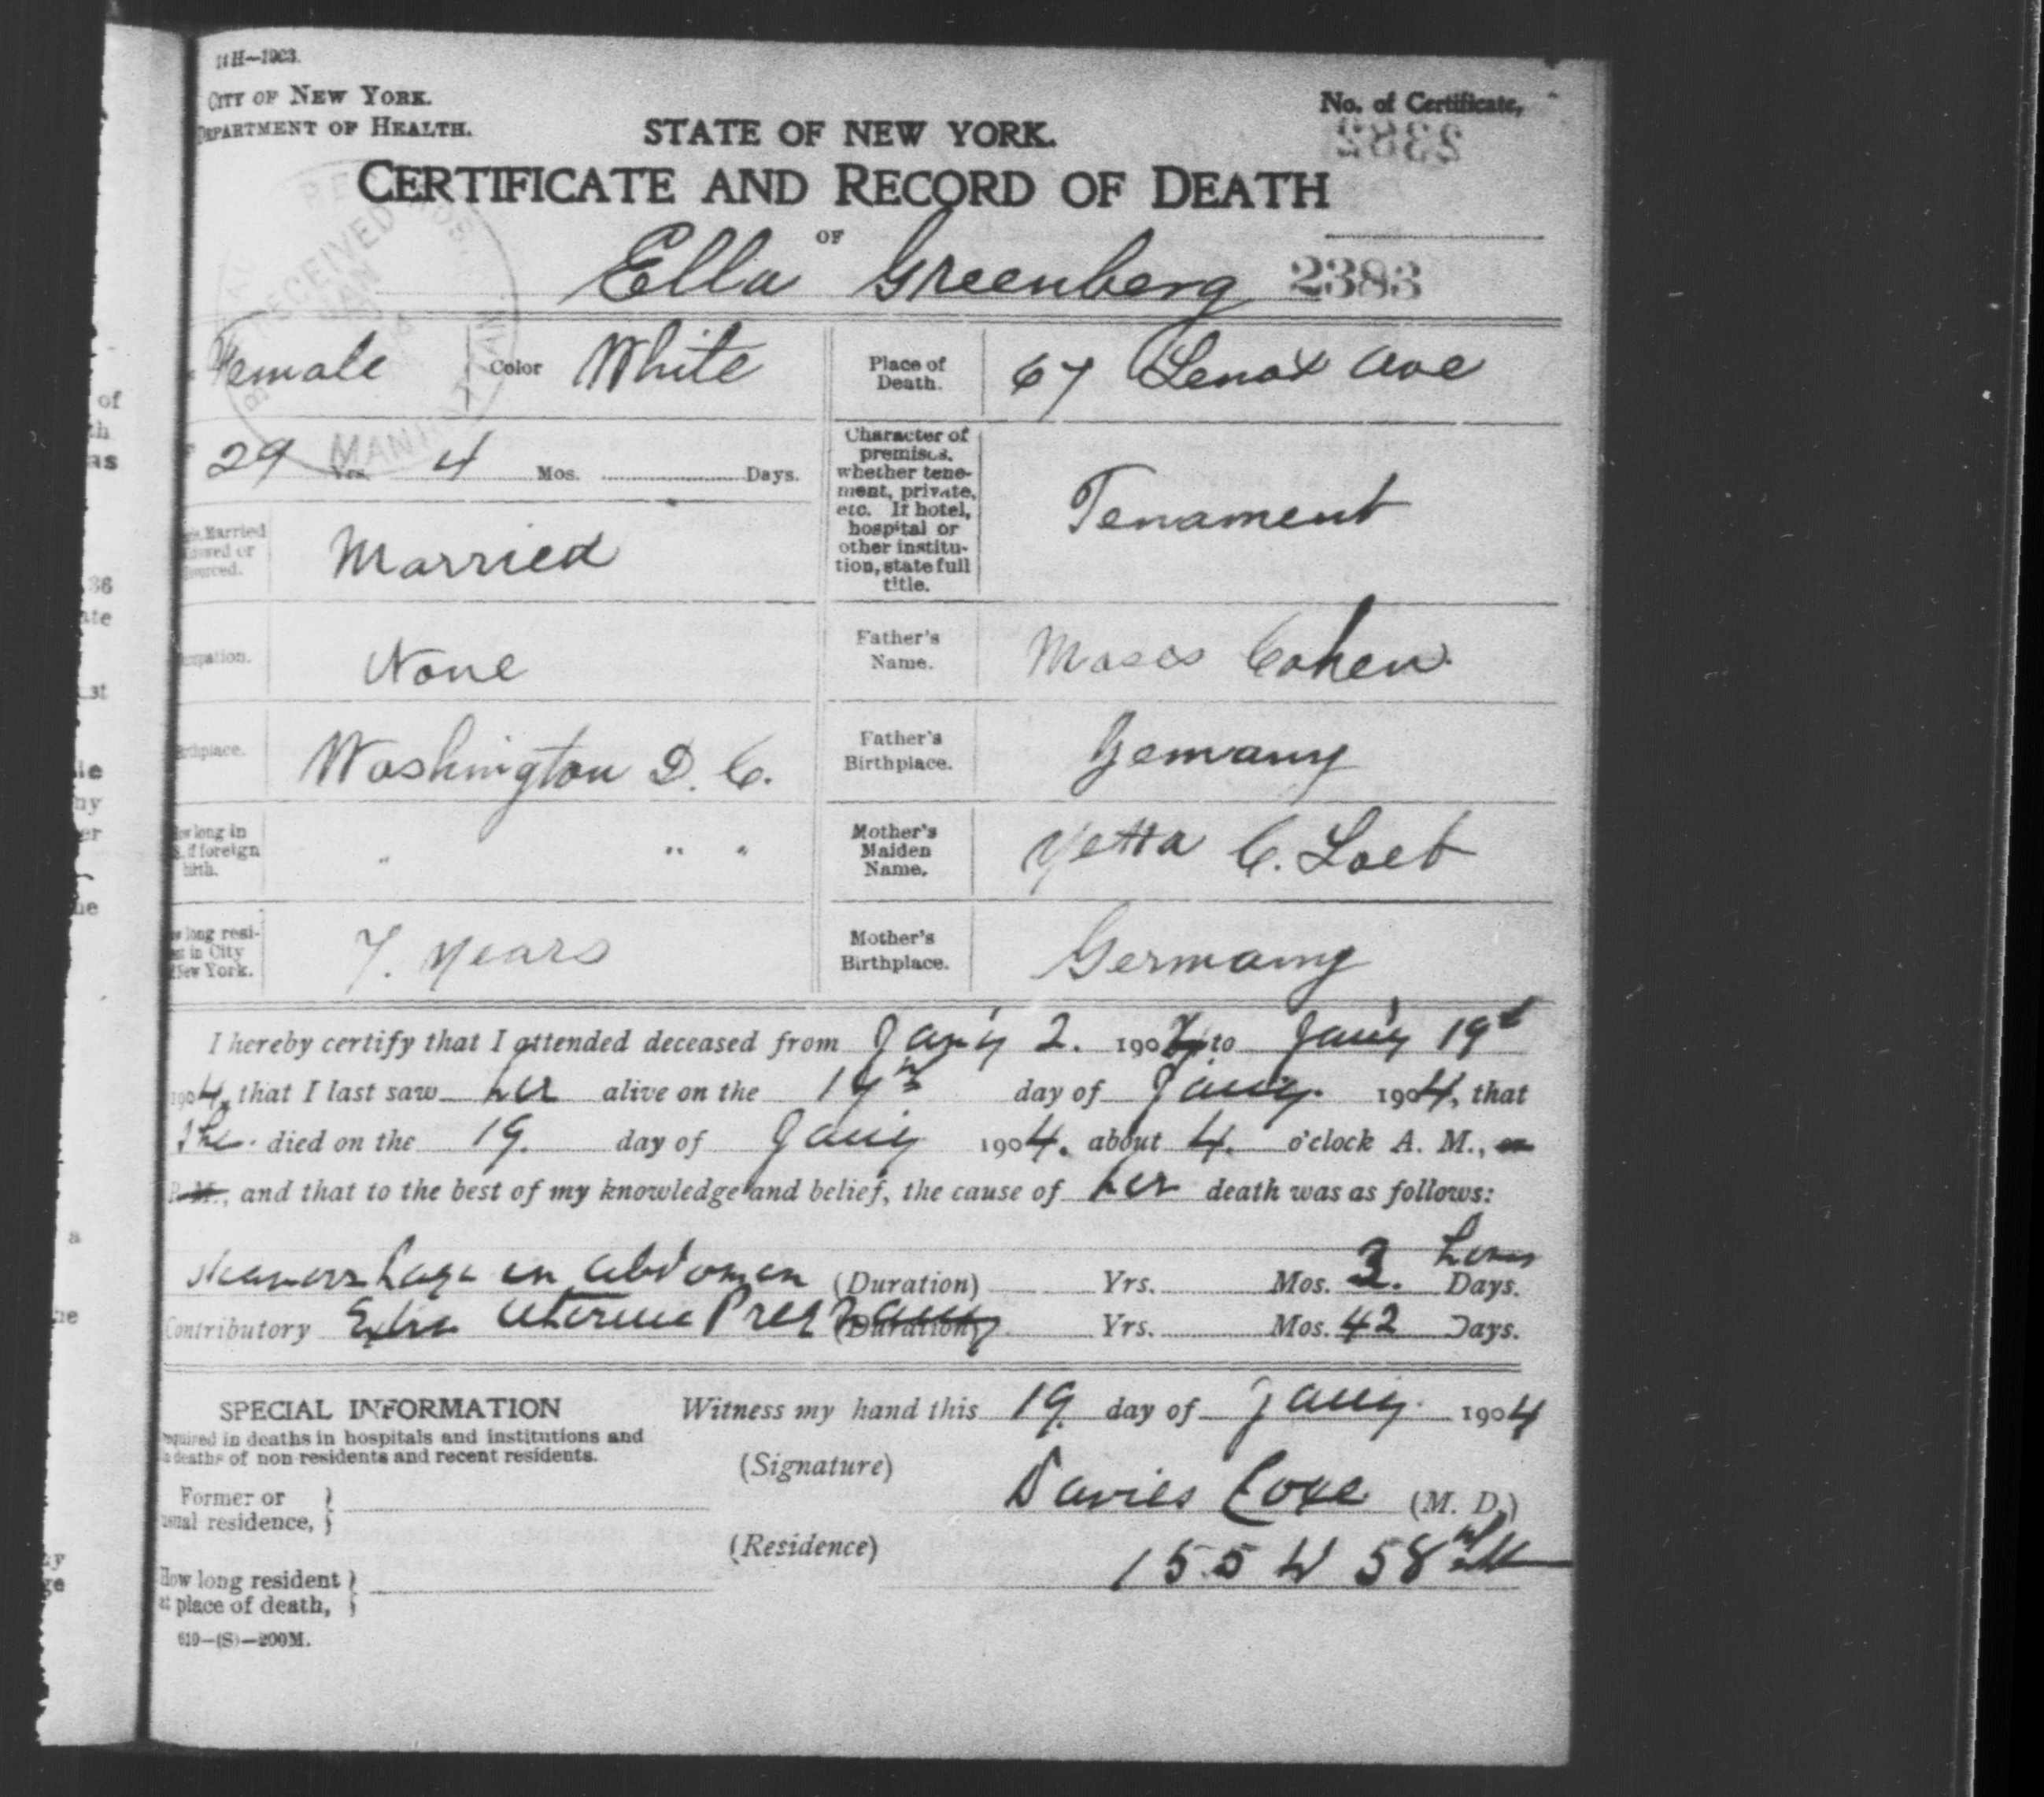 11H—1903.
CITY OF NEW YORK.
DEPARTMENT OF HEALTH.
No. of Certificate,
2382
STATE OF NEW YORK.
CERTIFICATE AND RECORD OF DEATH
OF
Ella Greenberg 2383
RECEIVED
JAN
MANHATTAN
Female Color White
Place of Death. 67 Lenox Ave
29 Yrs. 4 Mos. Days.
Character of premises, whether tenement, private, etc. If hotel, hospital or other institution, state full title. Tenament
Married or Divorced. Married
None
Father's Name. Moses Cohen.
Birthplace. Washington D. C.
Father's Birthplace. Gemany
How long in foreign birth. " " "
Mother's Maiden Name. Yetta C. Loeb
How long resident in City New York. 7. Years
Mother's Birthplace. Germany
I hereby certify that I attended deceased from Jany 2. 1904 to Jany 19th
1904, that I last saw her alive on the 19th day of Jany. 1904, that
she died on the 19. day of Jany 1904, about 4. o'clock A. M., or
P. M., and that to the best of my knowledge and belief, the cause of her death was as follows:
Heamorrhage in abdomen (Duration) Yrs. Mos. 3. hours Days.
Contributory Extra uterine Pregnancy (Duration) Yrs. Mos. 42 Days.
SPECIAL INFORMATION
required in deaths in hospitals and institutions and
deaths of non residents and recent residents.
Witness my hand this 19. day of Jany. 1904
(Signature) Davies Coxe (M. D.)
Former or usual residence,
(Residence) 155 W 58th
How long resident at place of death,
619—(S)—200M.